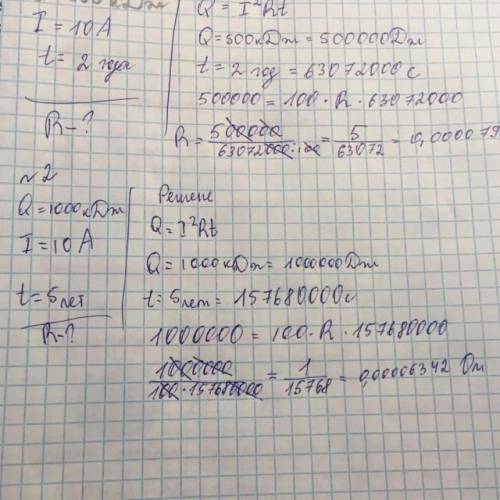 I = 10A
t = 2 года
R - ?
Q = I²Rt
Q = 500кДж = 500000Дж
t = 2 год = 63072000 с
500000 = 100 · R · 63072000
R = 500000 / 63072000·100 = 5 / 63072 = 0,000079
№2
Q = 1000кДж
I = 10 A
t = 5 лет
R - ?
Решене
Q = I²Rt
Q = 1000кДж = 1000000Дж
t = 5 лет = 157680000с
1000000 = 100 · R · 157680000
1000000 / 100 · 157680000 = 1 / 15768 = 0,00006342 Ом